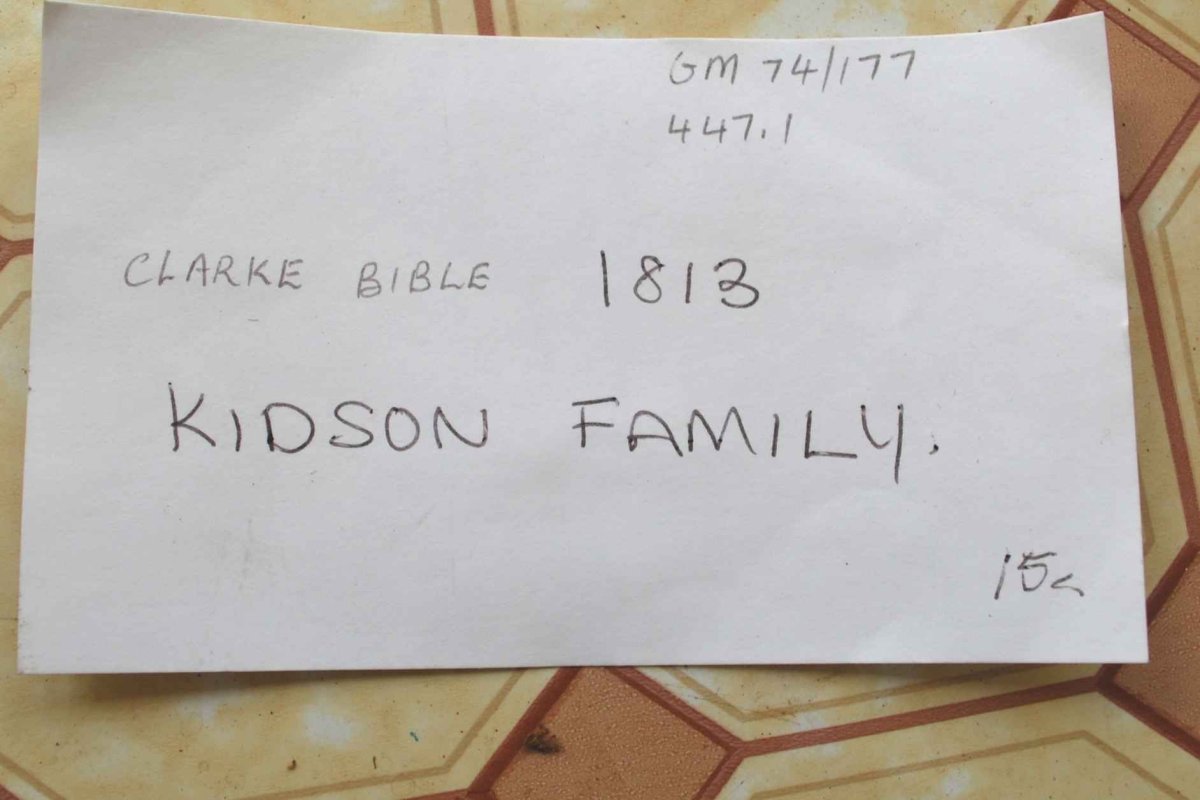 GM 74/177
447.1
CLARKE BIBLE 1813
KIDSON FAMILY.
15c